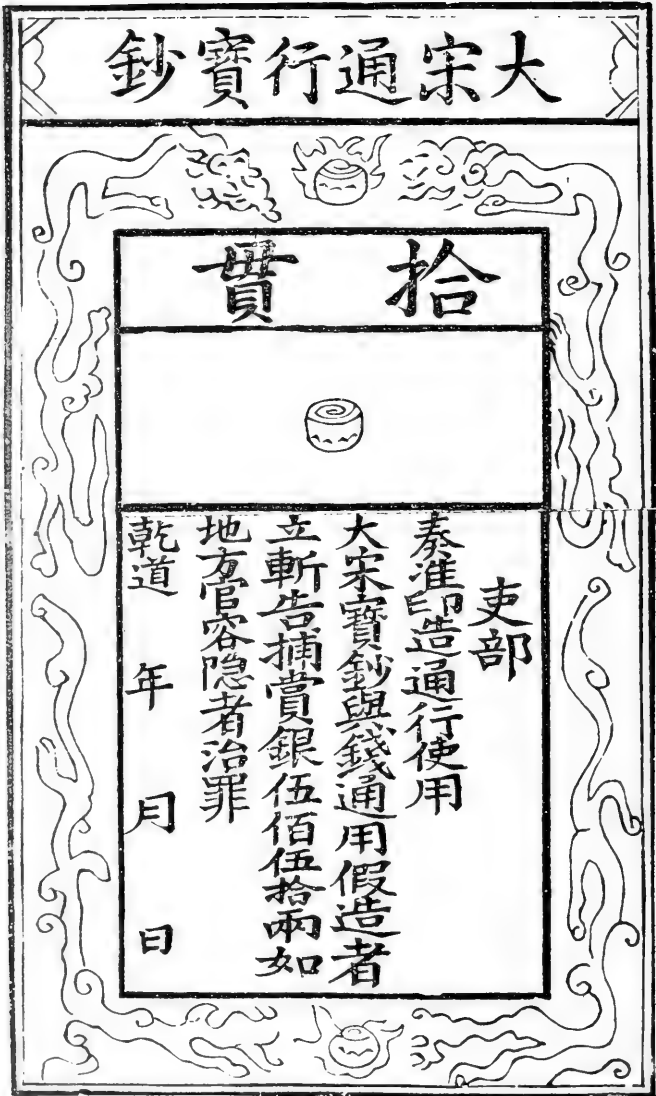 大宋通行寶鈔
拾貫
吏部
奏准印造通行使用
大宋寶鈔與錢通用假造者
立斬告捕賞銀伍佰伍拾兩如
地方官容隐者治罪
乾道 年 月 日